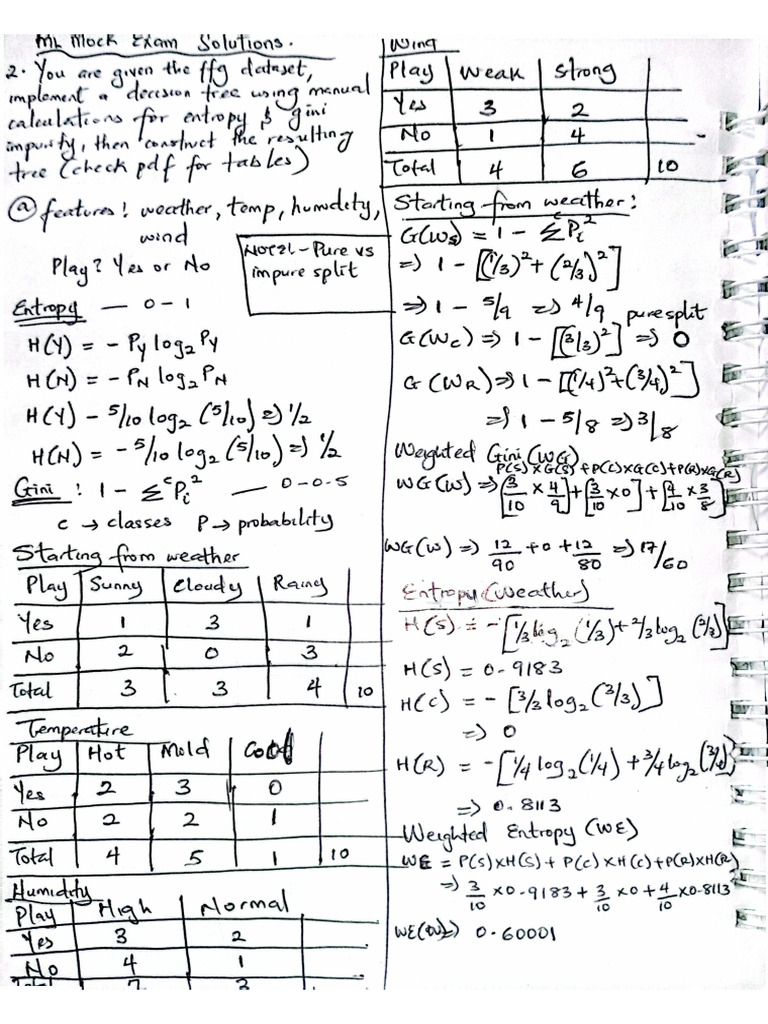 ML Mock Exam Solutions.
2. You are given the ffg dataset,
implement a decision tree using manual
calculations for entropy & gini
impurity, then construct the resulting
tree (check pdf for tables)
@ features! weather, temp, humdity,
wind
Play? Yes or No
Pure vs
impure split
Entropy — 0 - 1
H(Y) = - Py log₂ Py
H(N) = - PN log₂ PN
H(Y) - 5/10 log₂ (5/10) => 1/2
H(N) = - 5/10 log₂ (5/10) => 1/2
Gini : 1 - Σᶜ Pᵢ² — 0-0.5
c → classes P → probability
Starting from weather
Play Sunny Cloudy Rainy
Yes 1 3 1
No 2 0 3
Total 3 3 4 10
Temperature
Play Hot Mold
Yes 2 3 0
No 2 2 1
Total 4 5 1 10
Humidity
Play High Normal
Yes 3 2
No 4 1
Total 7 3
Wind
Play Weak Strong
Yes 3 2
No 1 4
Total 4 6 10
Starting from weather:
G(Ws) = 1 - Σᶜ Pᵢ²
=> 1 - [(1/3)² + (2/3)²]
=> 1 - 5/9 => 4/9 pure split
G(Wc) => 1 - [(3/3)²] => 0
G(WR) => 1 - [(1/4)² + (3/4)²]
=> 1 - 5/8 => 3/8
Weighted Gini (WG)
P(S) x G(S) + P(C) x G(C) + P(R) x G(R)
WG(W) => [3/10 x 4/9] + [3/10 x 0] + [4/10 x 3/8]
WG(W) => 12/90 + 0 + 12/80 => 17/60
Entropy (Weather)
H(S) = - [1/3 log₂ (1/3) + 2/3 log₂ (2/3)]
H(S) = 0.9183
H(C) = - [3/3 log₂ (3/3)]
=> 0
H(R) = - [1/4 log₂ (1/4) + 3/4 log₂ (3/4)]
=> 0.8113
Weighted Entropy (WE)
WE = P(S) x H(S) + P(C) x H(C) + P(R) x H(R)
=> 3/10 x 0.9183 + 3/10 x 0 + 4/10 x 0.8113
WE(W) => 0.60001